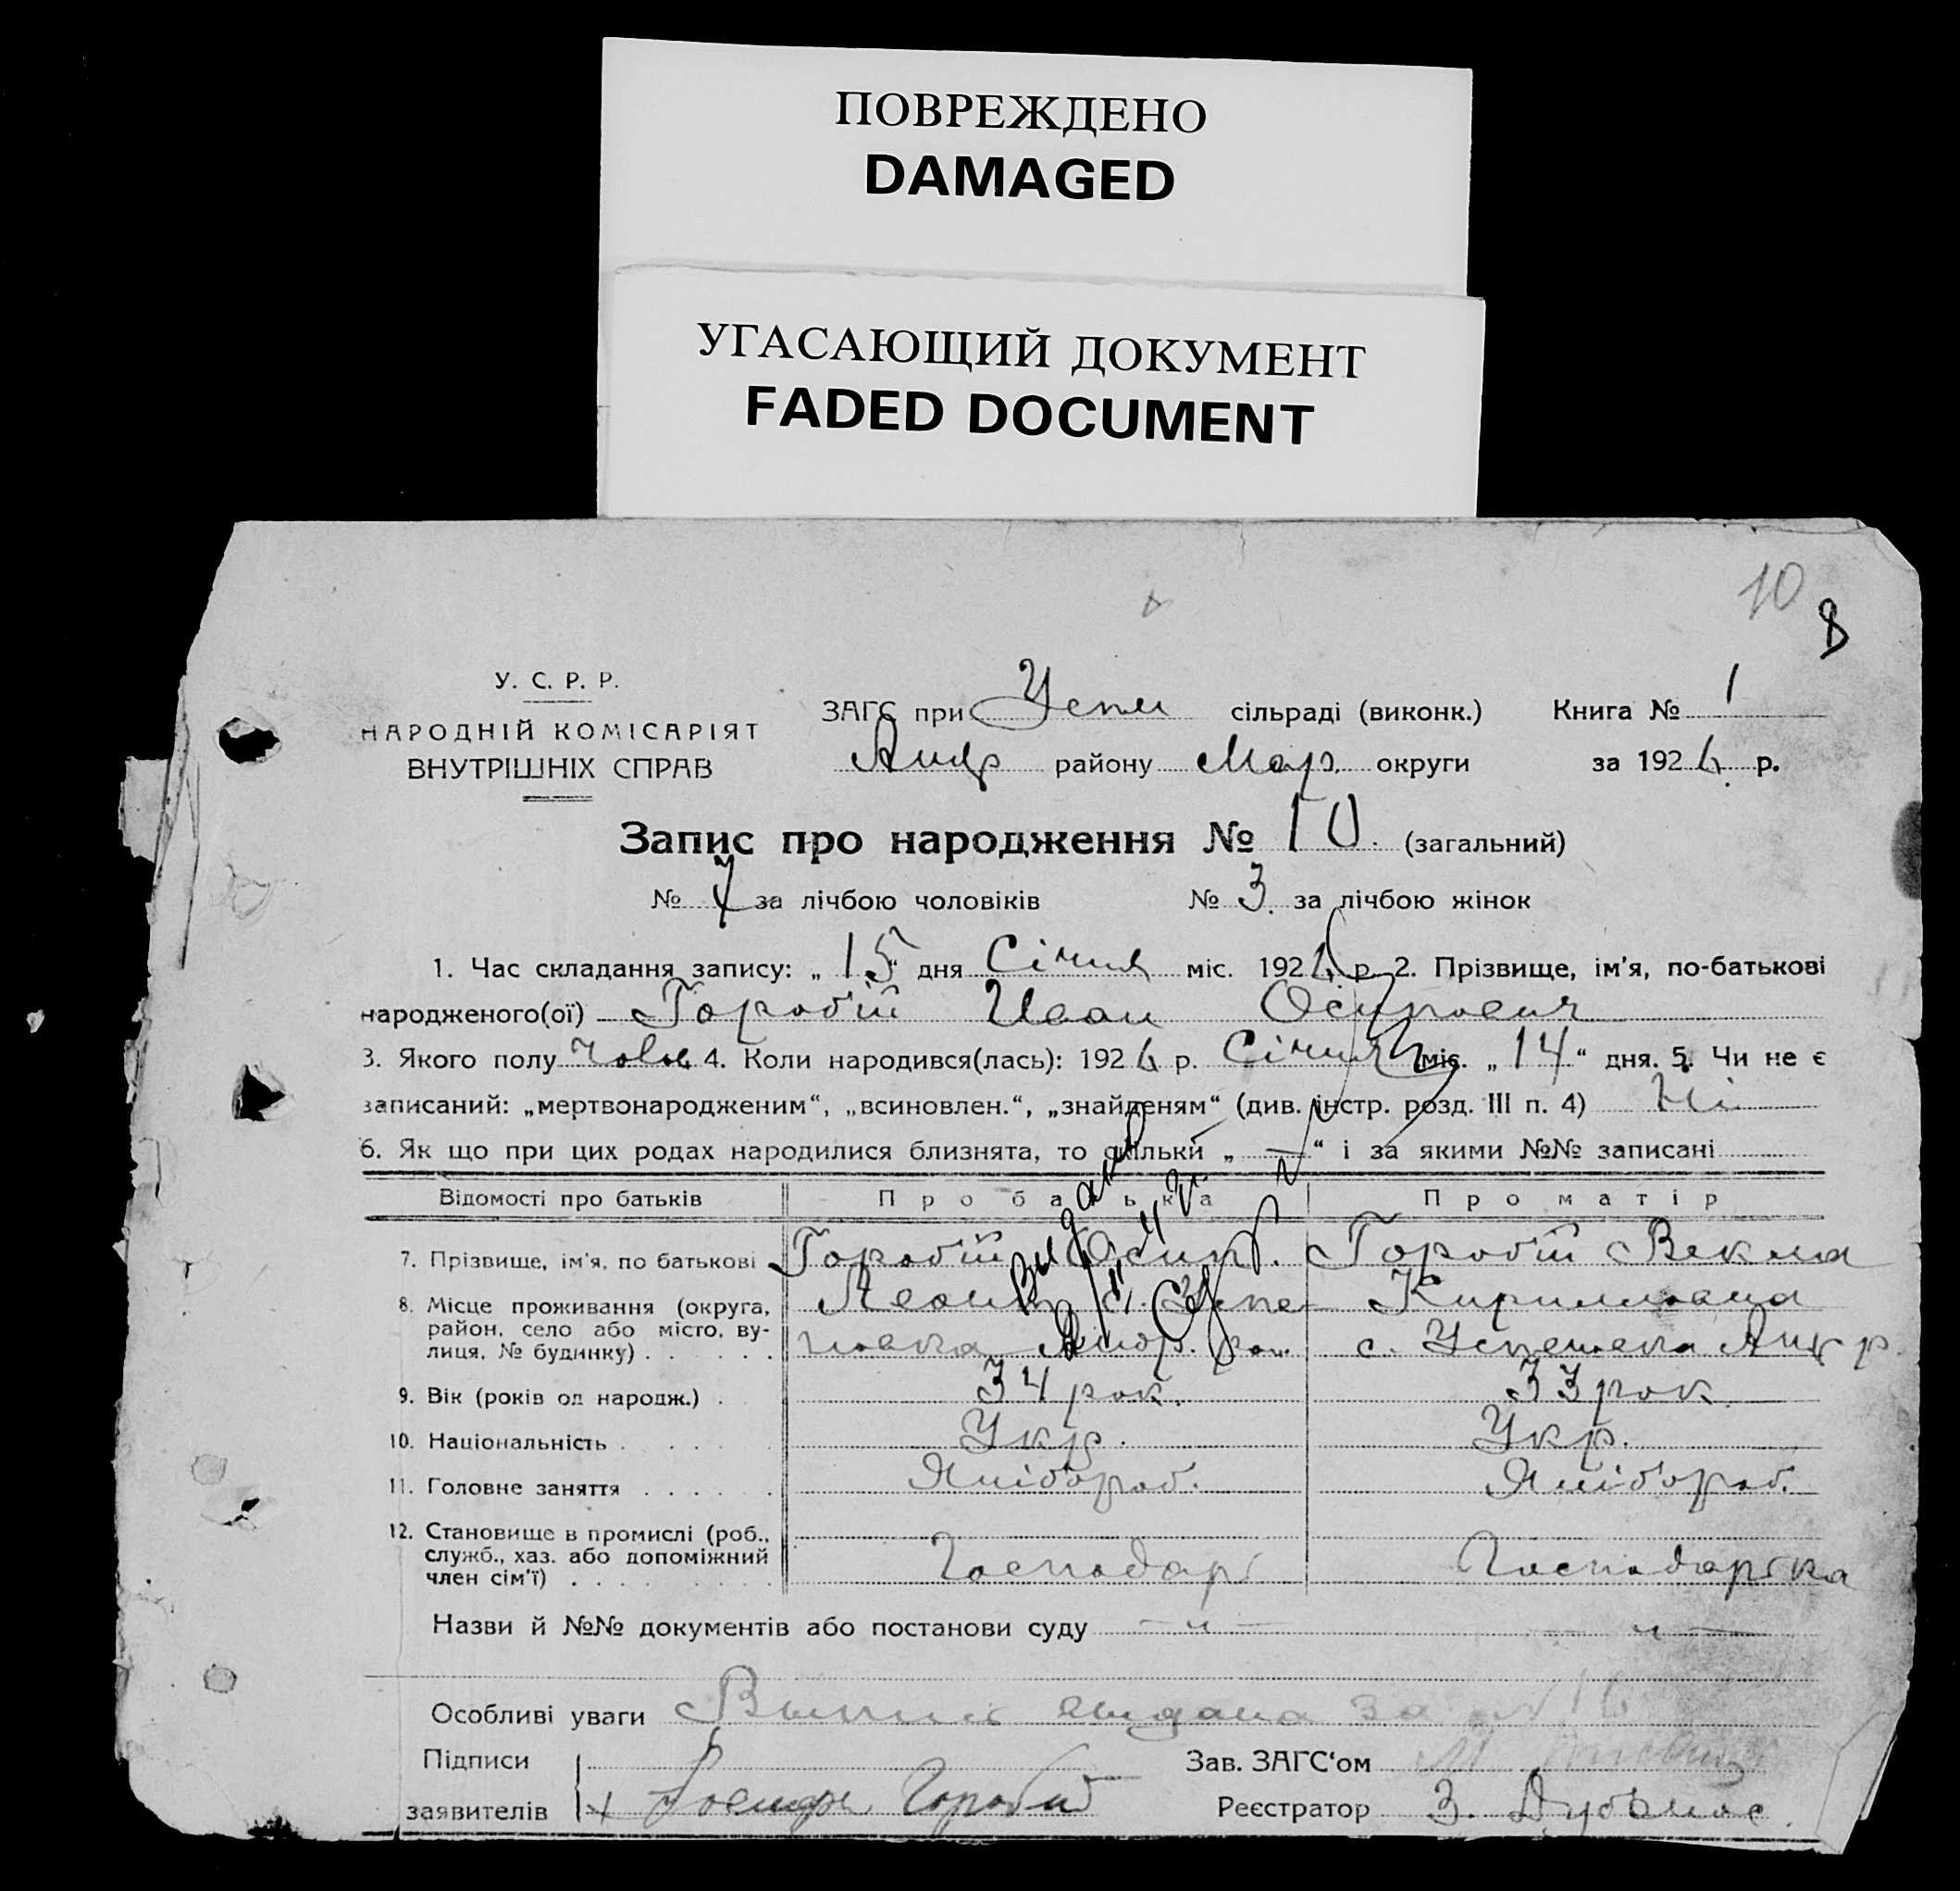 ПОВРЕЖДЕНО
DAMAGED
УГАСАЮЩИЙ ДОКУМЕНТ
FADED DOCUMENT
10
8
У. С. Р. Р.
НАРОДНІЙ КОМІСАРІЯТ
ВНУТРІШНІХ СПРАВ
ЗАГС при Успен сільраді (виконк.) Книга № 1
району Мар. округи за 192 6 р.
Запис про народження № 10. (загальний)
№ 7 за лічбою чоловіків № 3. за лічбою жінок
1. Час складання запису: „ 15 “ дня Січня міс. 192 6 р. 2. Прізвище, ім'я, по-батькові
народженого(ої) Горобій Иван Осипович
3. Якого полу чолов 4. Коли народився(лась): 192 6 р. Січня міс. „ 14 “ дня. 5. Чи не є
записаний: „мертвонародженим“, „всиновлен.“, „знайденям“ (див. інстр. розд. III п. 4) Ні
6. Як що при цих родах народилися близнята, то скільки „ — “ і за якими №№ записані
Відомості про батьків Про батька Про матір
7. Прізвище, ім'я, по батькові Горобій Осип. Горобій Векла
8. Місце проживання (округа, район, село або місто, вулиця, № будинку) Кирилловна
с. Успеновка Андр р.
9. Вік (років од народж.) 34 рок. 33 рок
10. Національність Укр. Укр.
11. Головне заняття Хлібороб. Хлібороб.
12. Становище в промислі (роб.,
служб., хаз. або допоміжний
член сім'ї) Господарь Господарька
Назви й №№ документів або постанови суду — „ — — „ —
Особливі уваги видана за №
Підписи Зав. ЗАГС'ом
заявителів Горобий Реєстратор З.